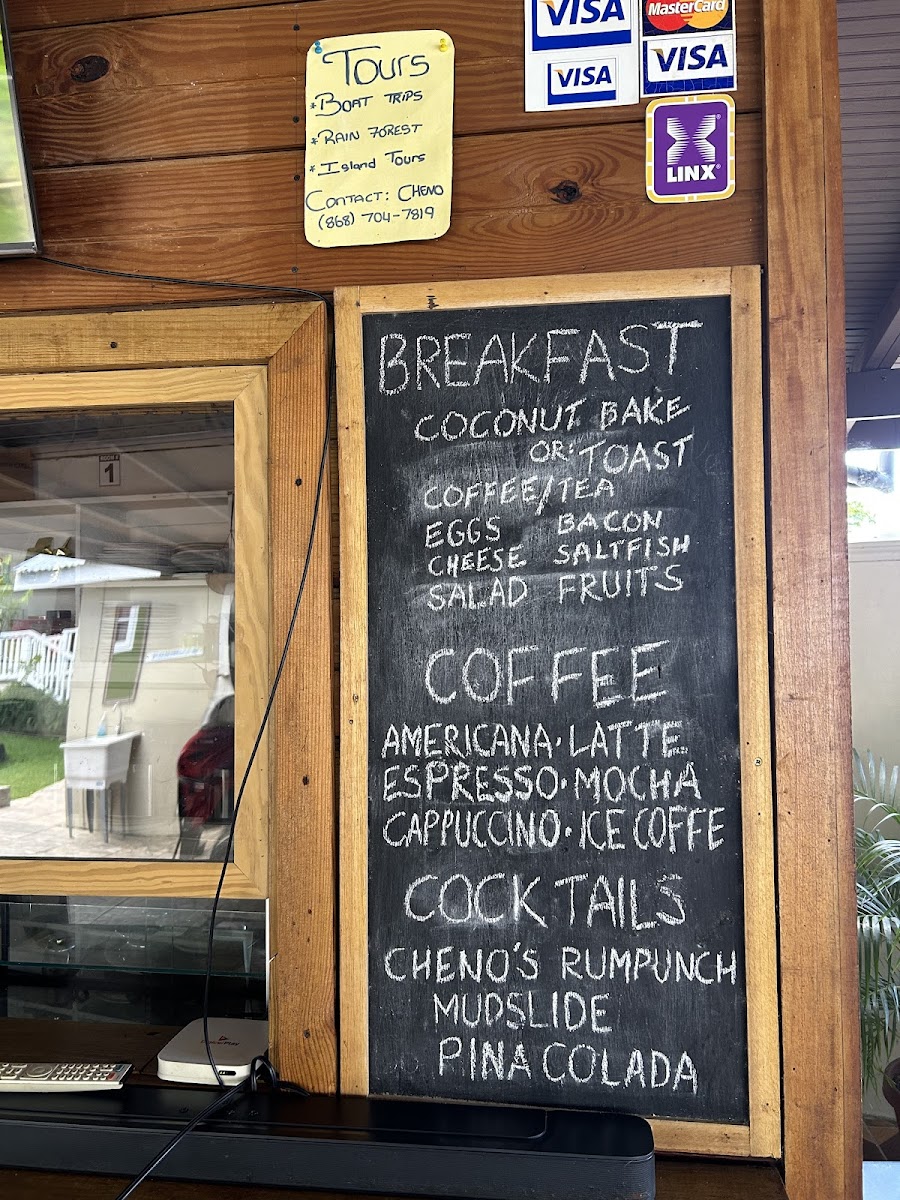 Tours
*Boat trips
*Rain Forest
*Island Tours
Contact: Cheno
(868) 704-7819
VISA
VISA
MasterCard
VISA
LINX
1
BREAKFAST
COCONUT BAKE
OR: TOAST
COFFEE/TEA
EGGS BACON
CHEESE SALTFISH
SALAD FRUITS
COFFEE
AMERICANA·LATTE
ESPRESSO·MOCHA
CAPPUCCINO·ICE COFFE
COCKTAILS
CHENO'S RUMPUNCH
MUDSLIDE
PINA COLADA